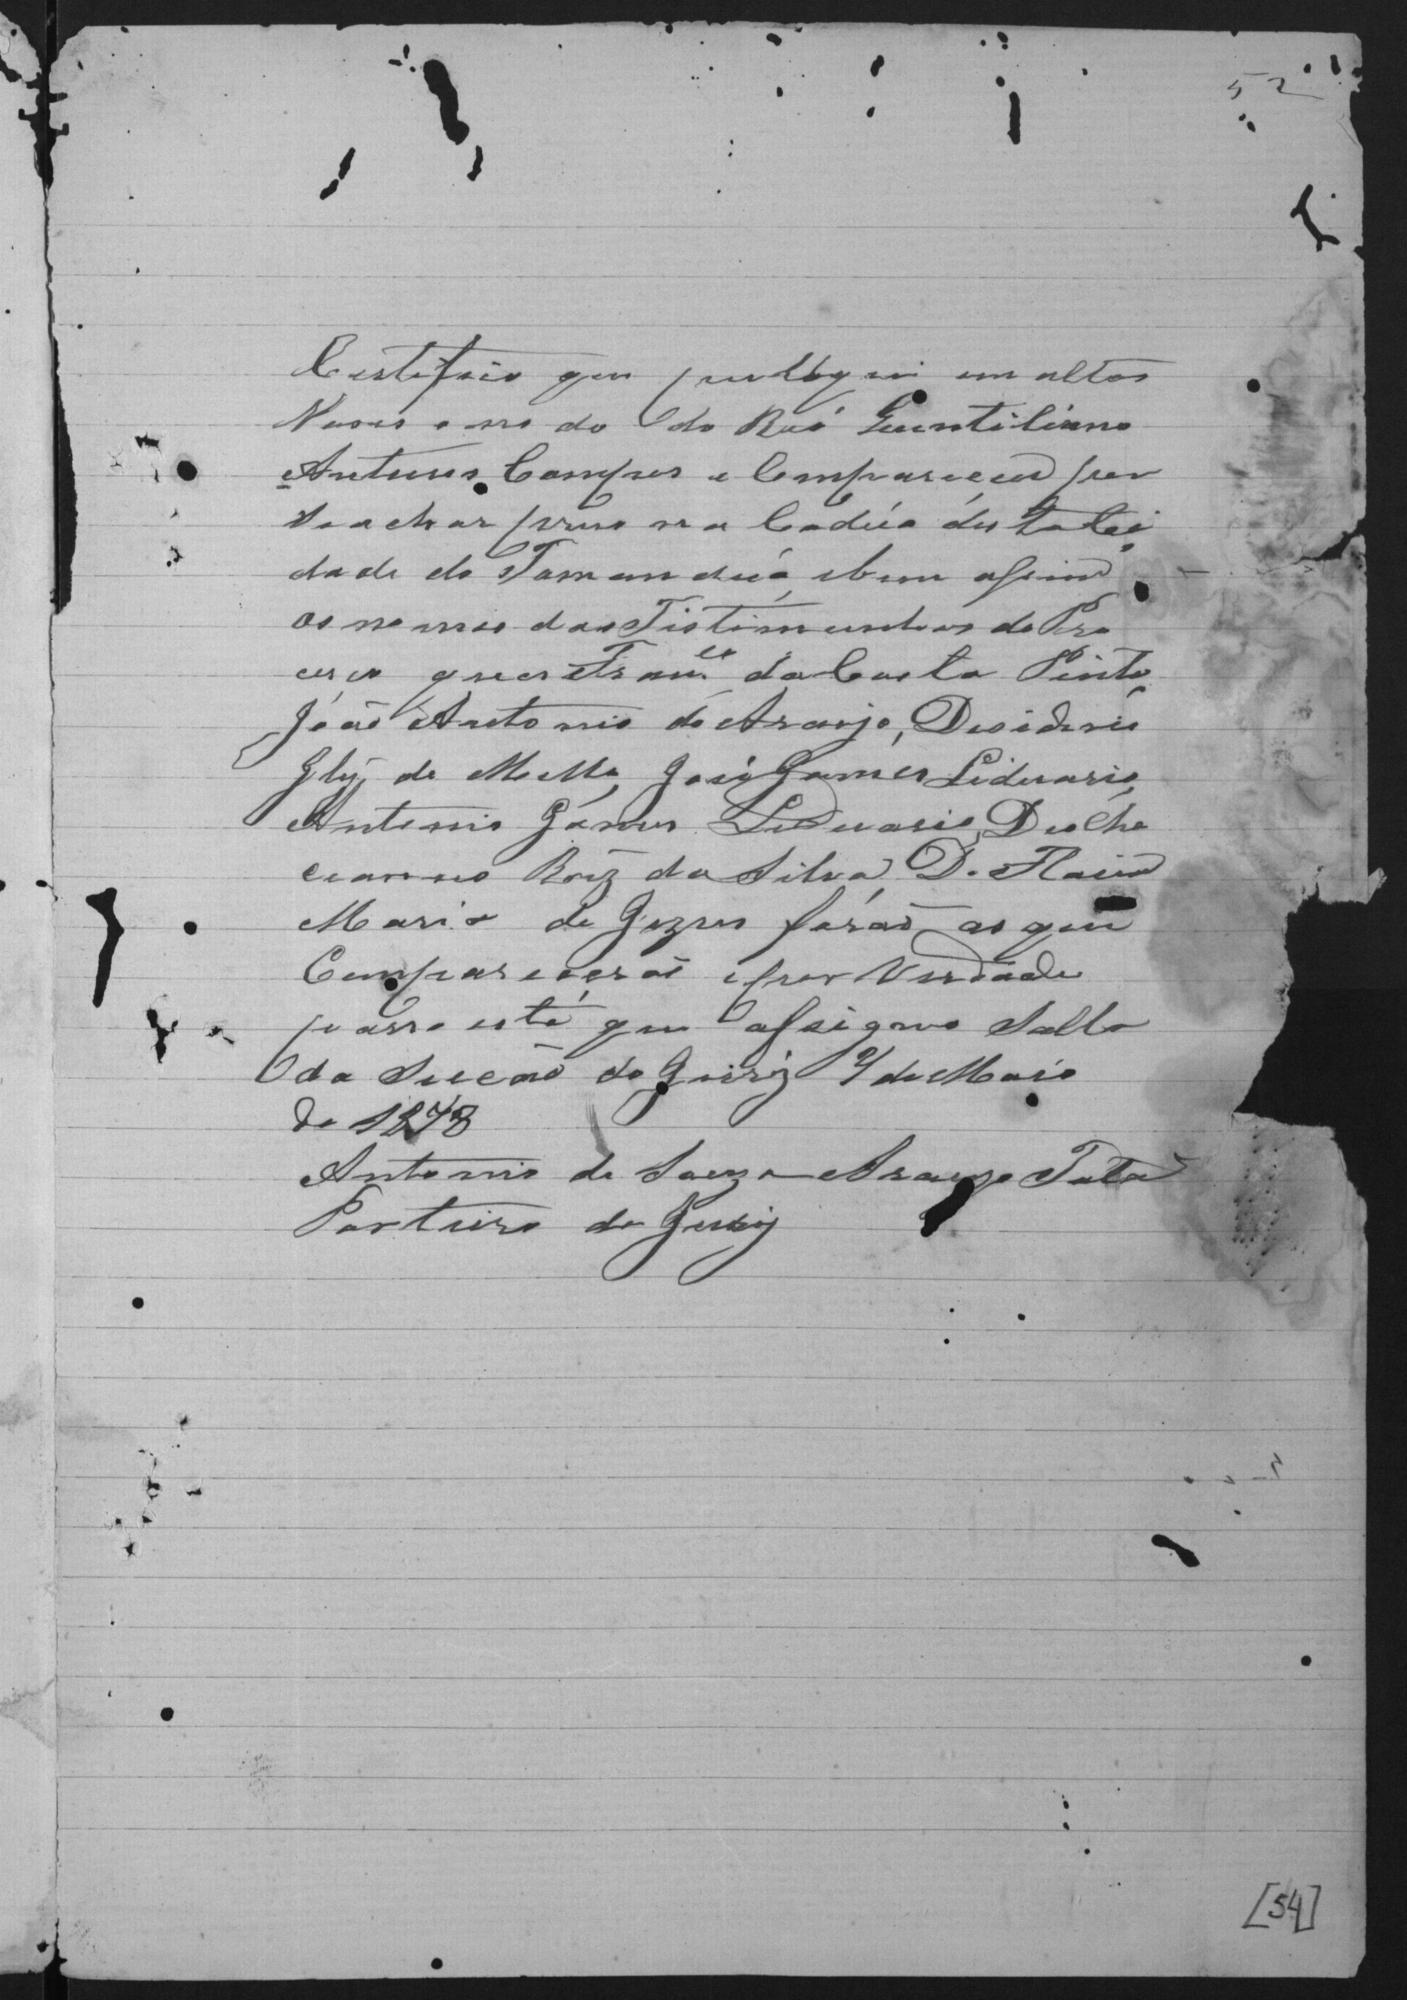 52
Certifico que publiquei em altas
Vozes o no do do Reó Quintiliano
Antunes Campos e Compareceu por
se achar preso na Cadeia désta Ci
dade do Tamanduá, ebem assim
os nomes das Tistimunhas do Pro
cesso que es Franco da Costa Pinto,
João Antonio de Araujo, Desiderio
de Mello, José Gomes Liduario,
Antonio Gómes Liduario,
Roiz da Silva, D. Flavia
Maria de Jezus fórão as que
Comparecerão epor Verdade
passo esté que assigno Salla
da Seccaõ do Juiriz 4 de Maio
de 1878
Antonio de Souza Araujo Tatá
Porteiro do Jury
[54]